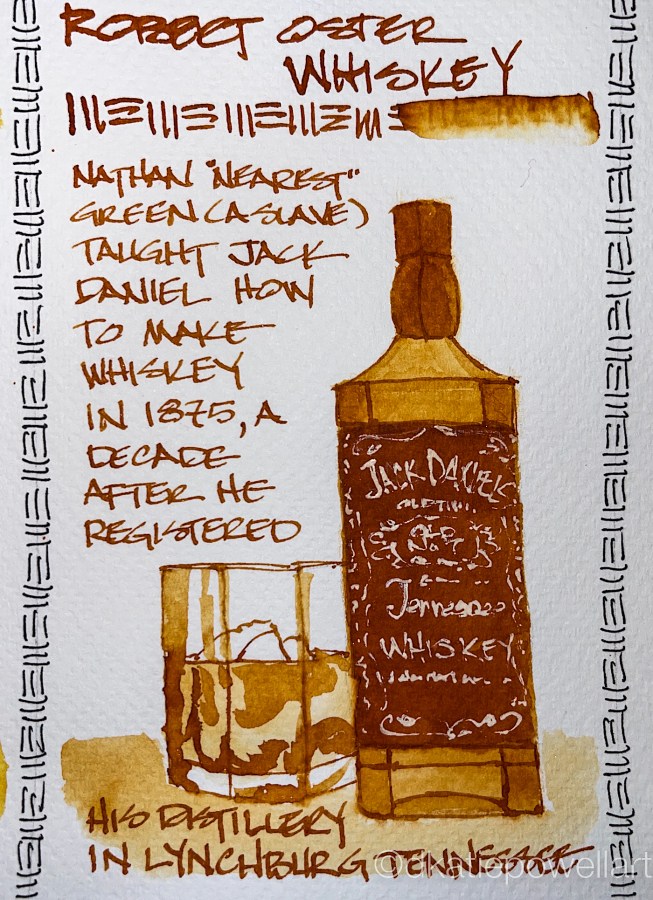 ROBERT OSTER
WHISKEY
NATHAN "NEAREST"
GREEN (A SLAVE)
TAUGHT JACK
DANIEL HOW
TO MAKE
WHISKEY
IN 1875, A
DECADE
AFTER HE
REGISTERED
JACK DANIEL'S
OLD
No 7
Tennessee
WHISKEY
HIS DISTILLERY
IN LYNCHBURG TENNESSEE
©dkatiepowellart